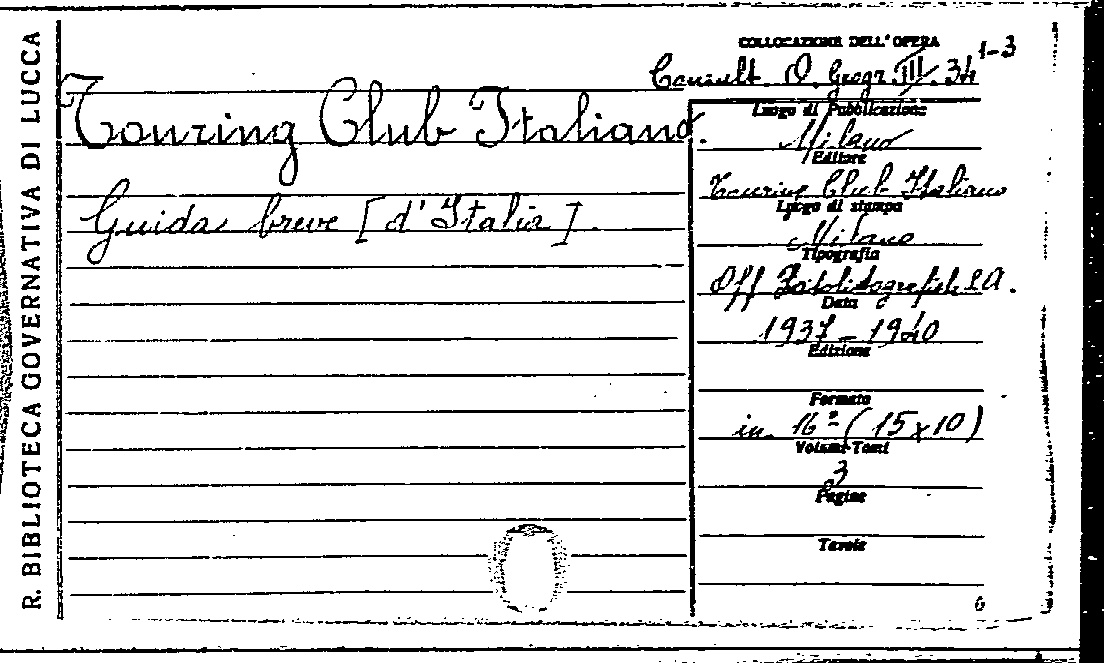 R. BIBLIOTECA GOVERNATIVA DI LUCCA
COLLOCAZIONE DELL'OPERA
Consult. O. Geogr. III. 34 1-3
Touring Club Italiano.
Guida breve [d'Italia].
Luogo di Pubblicazione
Milano
Editore
Touring Club Italiano
Luogo di stampa
Milano
Tipografia
Off. S.A.
Data
1937-1940
Edizione
Formato
in 16º (15x10)
Volumi-Tomi
3
Pagine
Tavole
6